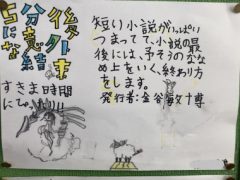 5分後に
意外な
結末
すきま時間
にて!!
短い小説がいっぱい
つまってて、小説の最
後には、予そうのなな
め上をいく、終わり方
をします。
発行者:金谷
博